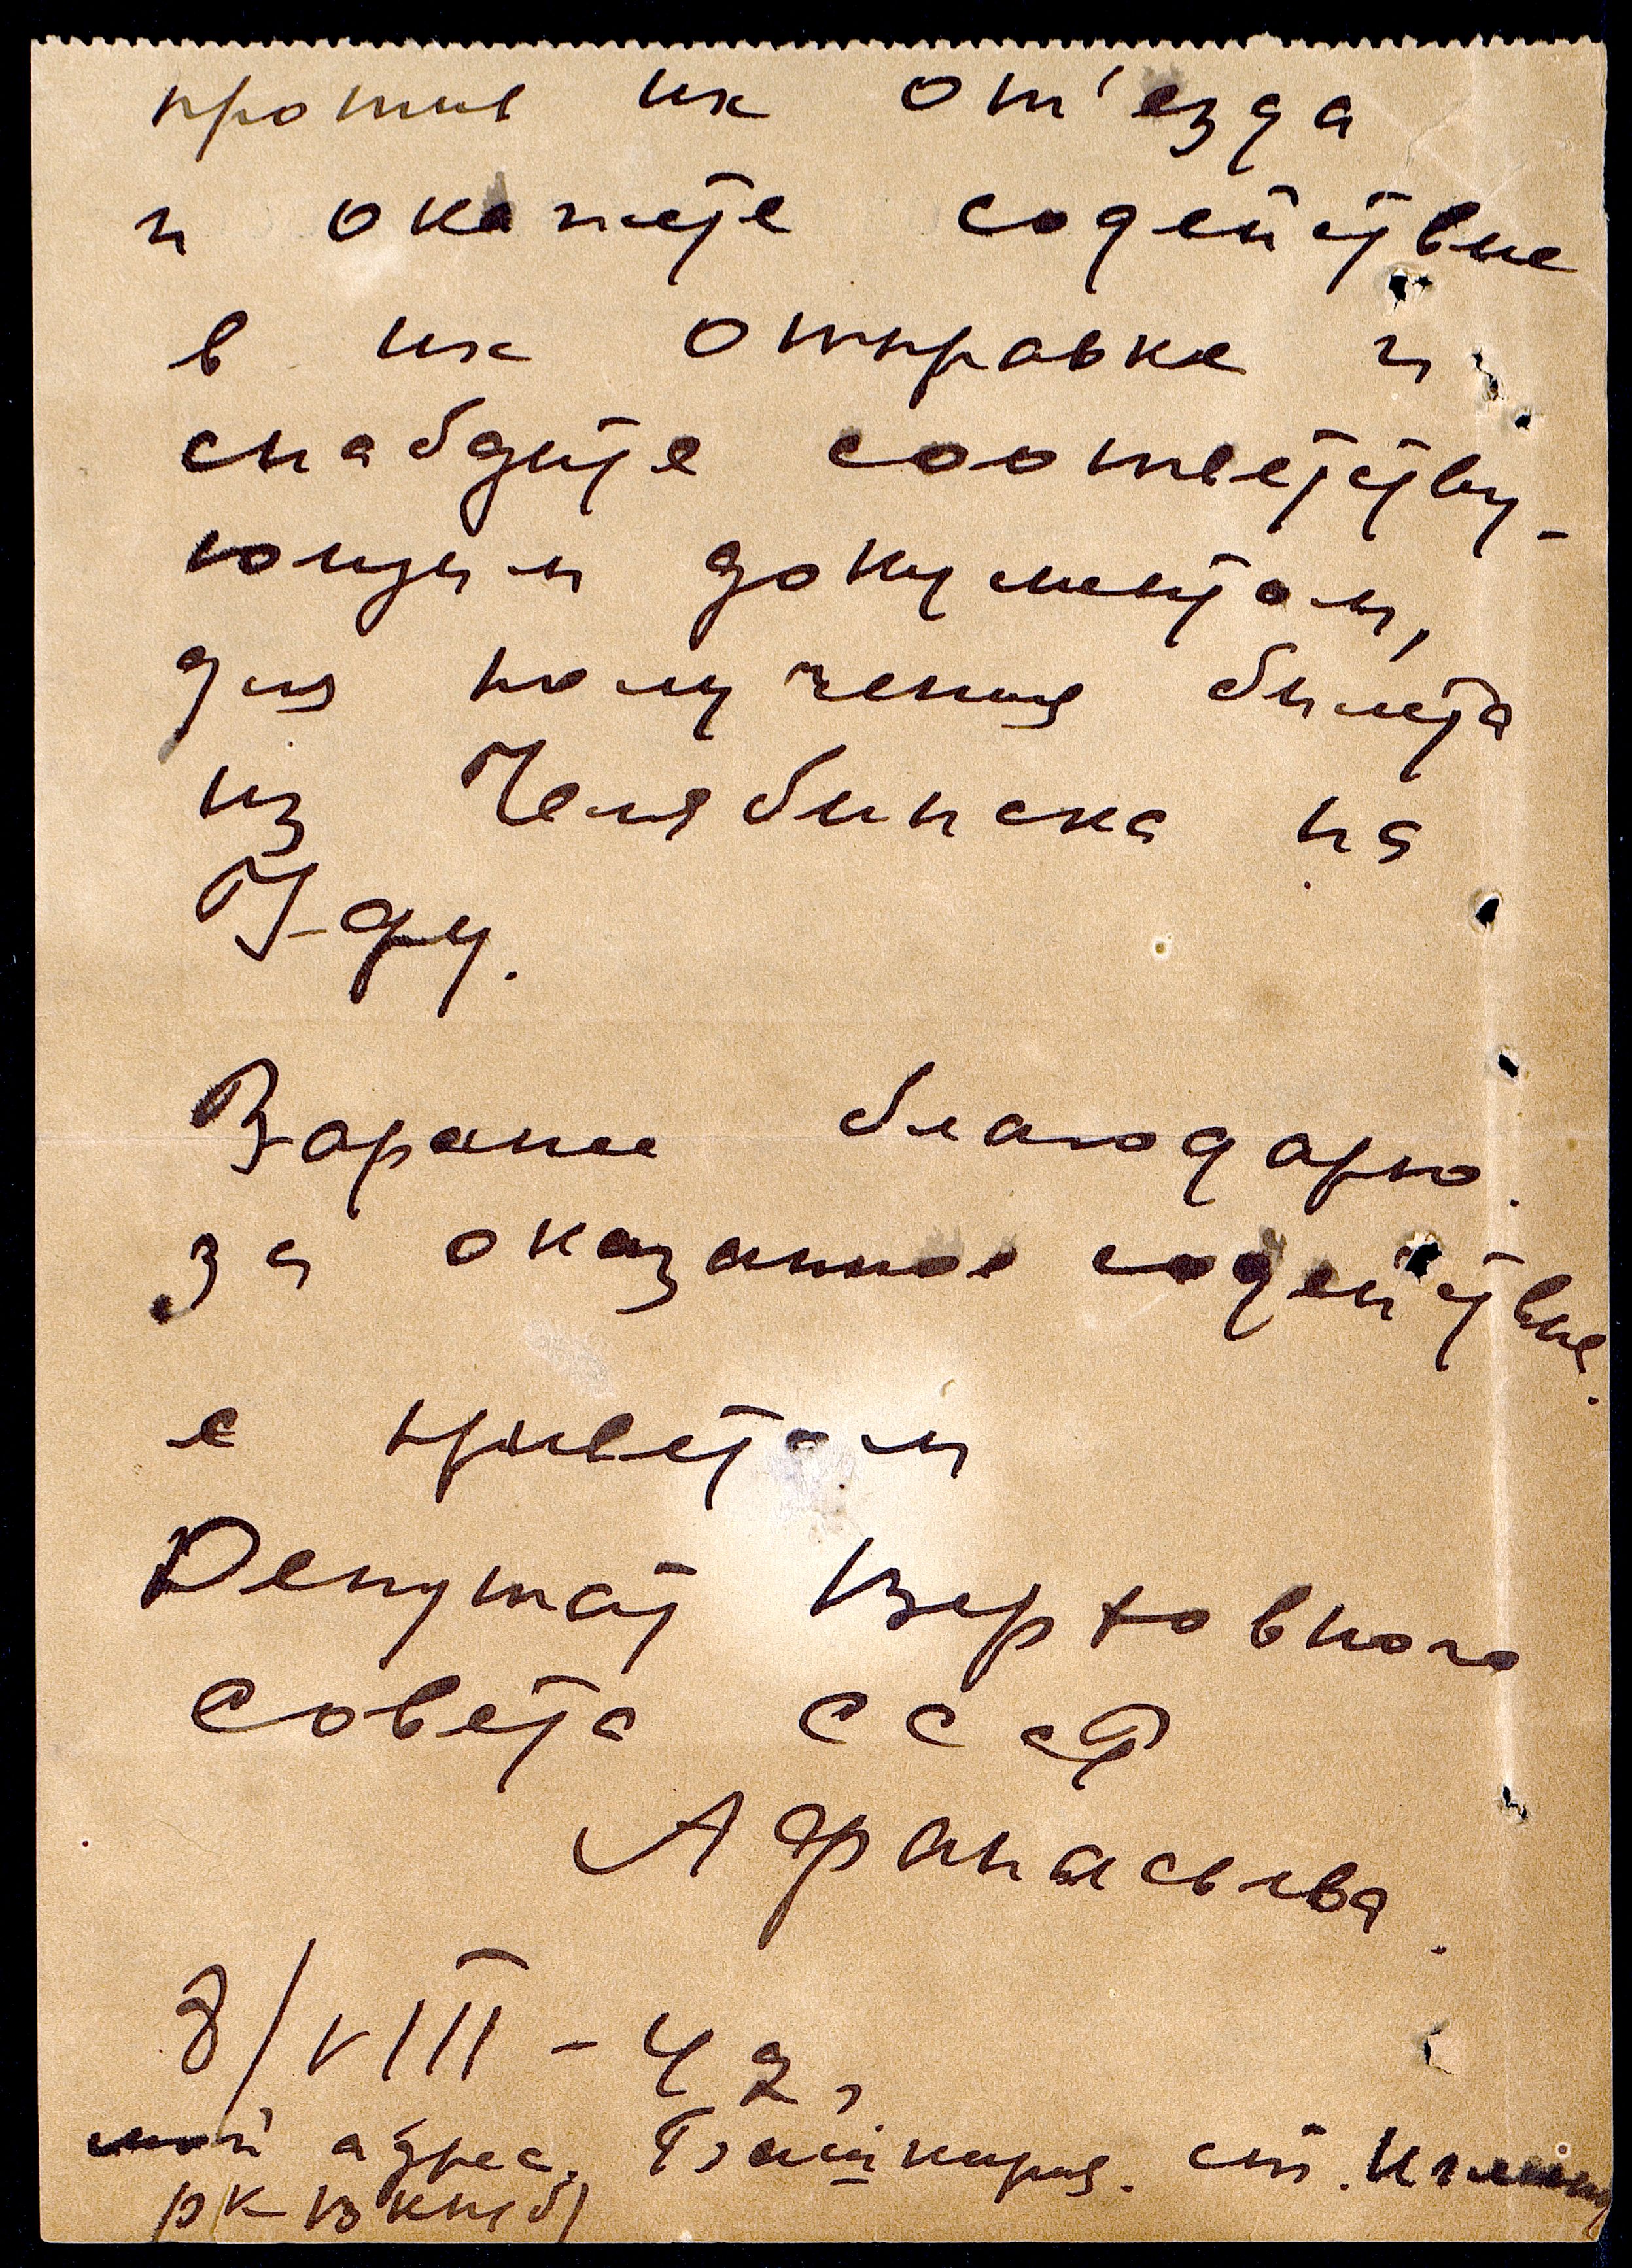 против их от'езда
и окажете содействие
в их отправке и
снабдите соответству-
ющим документом,
для получения билета
из Челябинска на
Уфу.
Заранее благодарю.
за оказанное содействие.
с приветом
Депутат Верховного
Совета СССР
Афанасьева.
8/VIII-42г
мой адрес. Башкирия. ст.
РК ВКП(б)